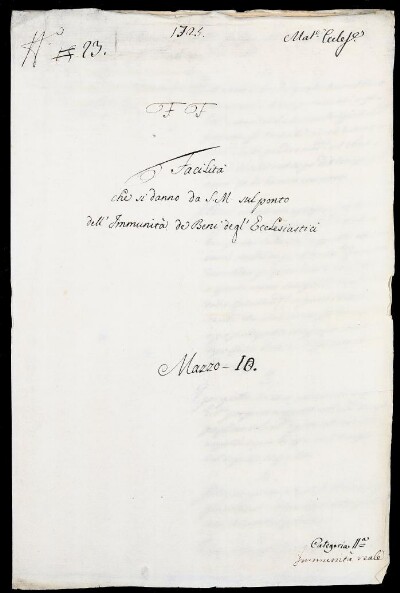 1725.
Mat.e Eccles.e
N.o 23.
F F
Facilità
che si danno da S. M. sul ponto
dell' Immunità de Beni degl' Ecclesiastici
Mazzo - 10.
Categoria II.a
Immunità reale